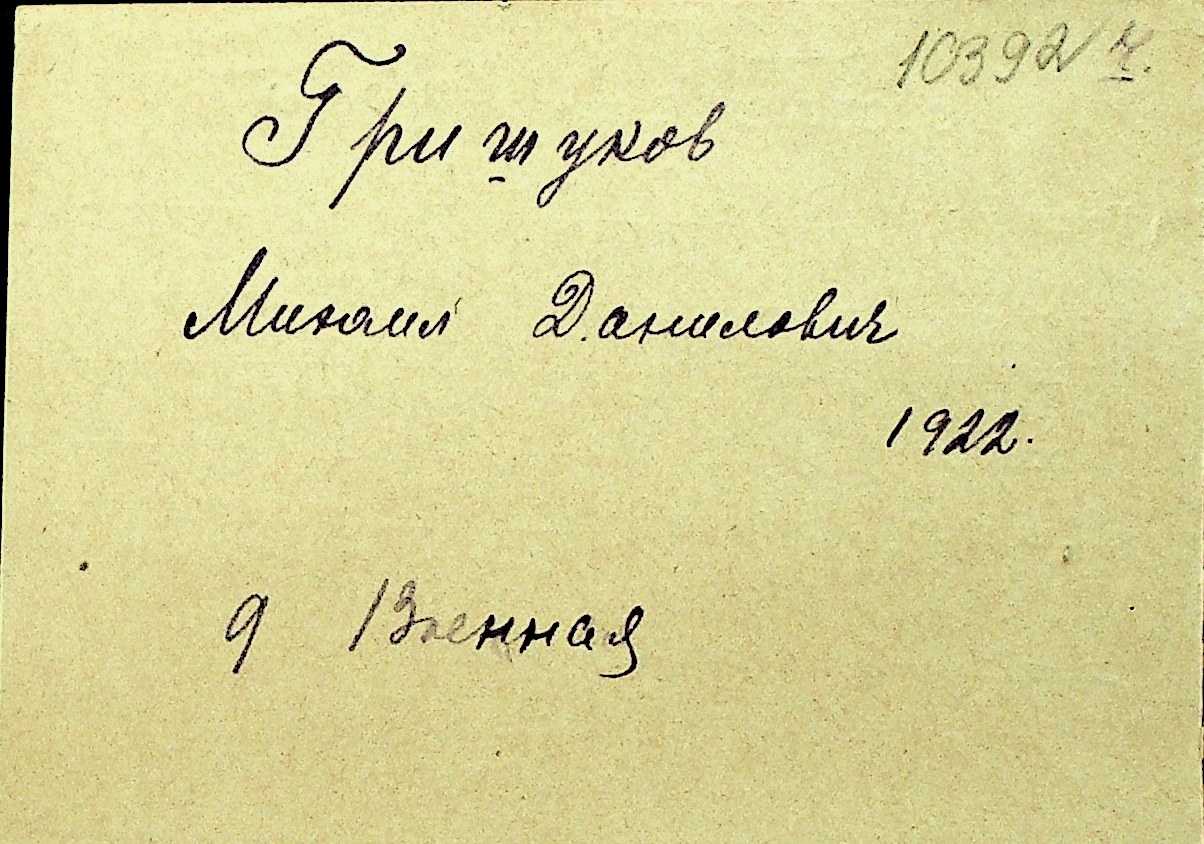 10392 ч.
Гришуков
Михаил Данилович
1922.
9 Военная